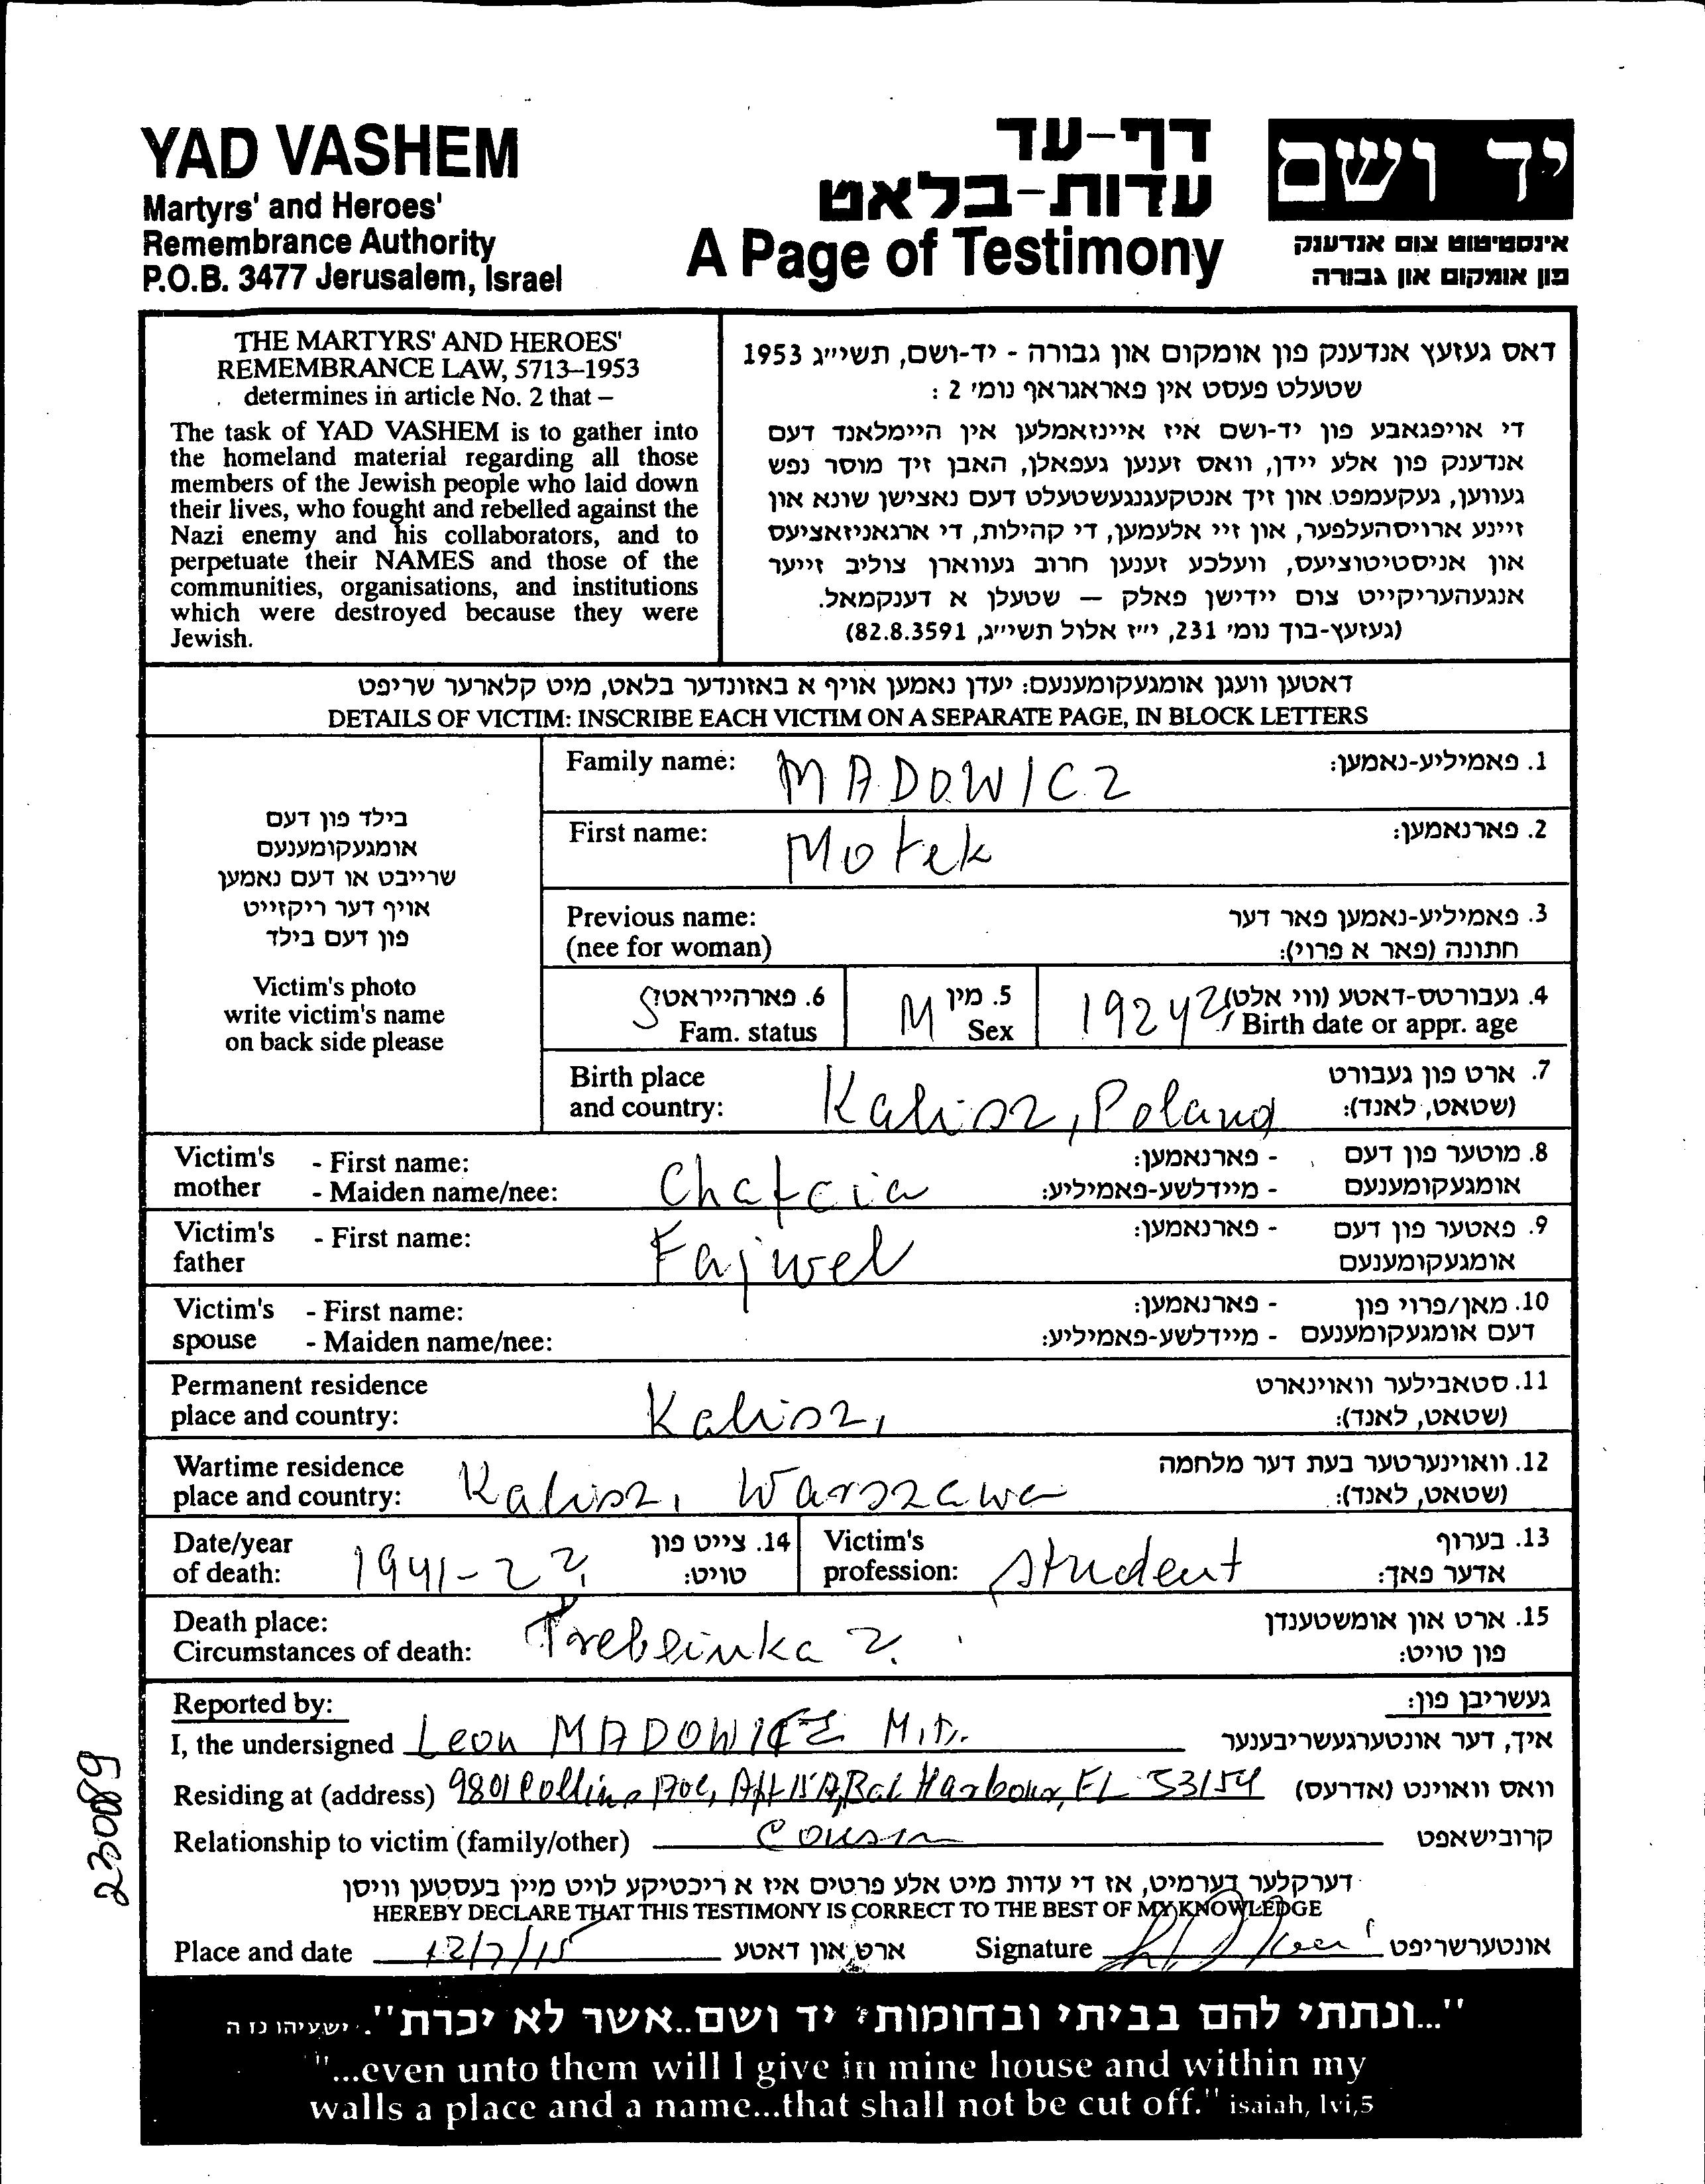 YAD VASHEM
Martyrs' and Heroes'
Remembrance Authority
P.O.B. 3477 Jerusalem, Israel
דף-עד
עדות-בלאט
A Page of Testimony
יד ושם
אינסטיטוט צום אנדענק
פון אומקום און גבורה
THE MARTYRS' AND HEROES'
REMEMBRANCE LAW, 5713–1953
determines in article No. 2 that –
The task of YAD VASHEM is to gather into
the homeland material regarding all those
members of the Jewish people who laid down
their lives, who fought and rebelled against the
Nazi enemy and his collaborators, and to
perpetuate their NAMES and those of the
communities, organisations, and institutions
which were destroyed because they were
Jewish.
דאס געזעץ אנדענק פון אומקום און גבורה - יד-ושם, תשי״ג 1953
שטעלט פעסט אין פאראגראף נומ׳ 2 :
די אויפגאבע פון יד-ושם איז איינזאמלען אין היימלאנד דעם
אנדענק פון אלע יידן, וואס זענען געפאלן, האבן זיך מוסר נפש
געווען, געקעמפט און זיך אנטקעגנגעשטעלט דעם נאצישן שונא און
זיינע ארויסהעלפער, און זיי אלעמען, די קהילות, די ארגאניזאציעס
און אניסטיטוציעס, וועלכע זענען חרוב געווארן צוליב זייער
אנגעהעריקייט צום יידישן פאלק — שטעלן א דענקמאל.
(געזעץ-בוך נומ׳ 231, י״ז אלול תשי״ג, 82.8.3591)
דאטען וועגן אומגעקומענעם: יעדן נאמען אויף א באזונדער בלאט, מיט קלארער שריפט
DETAILS OF VICTIM: INSCRIBE EACH VICTIM ON A SEPARATE PAGE, IN BLOCK LETTERS
בילד פון דעם
אומגעקומענעם
שרייבט או דעם נאמען
אויף דער ריקזייט
פון דעם בילד
Victim's photo
write victim's name
on back side please
Family name: MADOWICZ 1. פאמיליע-נאמען:
First name: Motek 2. פארנאמען:
Previous name: 3. פאמיליע-נאמען פאר דער
(nee for woman) חתונה (פאר א פרוי):
S 6. פארהייראט? M 5. מין 1924 2? 4. געבורטס-דאטע (ווי אלט)
Fam. status Sex Birth date or appr. age
Birth place 7. ארט פון געבורט
and country: Kalisz, Poland (שטאט, לאנד):
Victim's - First name: - פארנאמען: 8. מוטער פון דעם
mother - Maiden name/nee: - מיידלשע-פאמיליע: אומגעקומענעם
Victim's - First name: Fajwel - פארנאמען: 9. פאטער פון דעם
father אומגעקומענעם
Victim's - First name: - פארנאמען: 10. מאן/פרוי פון
spouse - Maiden name/nee: - מיידלשע-פאמיליע: דעם אומגעקומענעם
Permanent residence 11. סטאבילער וואוינארט
place and country: Kalisz, (שטאט, לאנד):
Wartime residence 12. וואוינערטער בעת דער מלחמה
place and country: Kalisz, Warszawa (שטאט, לאנד):
Date/year 14. צייט פון Victim's 13. בערוף
of death: 1941-2 ? טויט: profession: student אדער פאך:
Death place: 15. ארט און אומשטענדן
Circumstances of death: Treblinka ?. פון טויט:
Reported by: געשריבן פון:
I, the undersigned Leon MADOWICZ M.D. איך, דער אונטערגעשריבענער
Residing at (address) 9801 Collins Ave, Apt 15A, Bal Harbour, FL 33154 וואס וואוינט (אדרעס)
Relationship to victim (family/other) Cousin קרובישאפט
דערקלער דערמיט, אז די עדות מיט אלע פרטים איז א ריכטיקע לויט מיין בעסטען וויסן
HEREBY DECLARE THAT THIS TESTIMONY IS CORRECT TO THE BEST OF MY KNOWLEDGE
Place and date 12/7/15 ארט און דאטע Signature אונטערשריפט
230089
"...ונתתי להם בביתי ובחומותי יד ושם..אשר לא יכרת". ישעיהו נז ה
"...even unto them will I give in mine house and within my
walls a place and a name...that shall not be cut off." isaiah, lvi,5